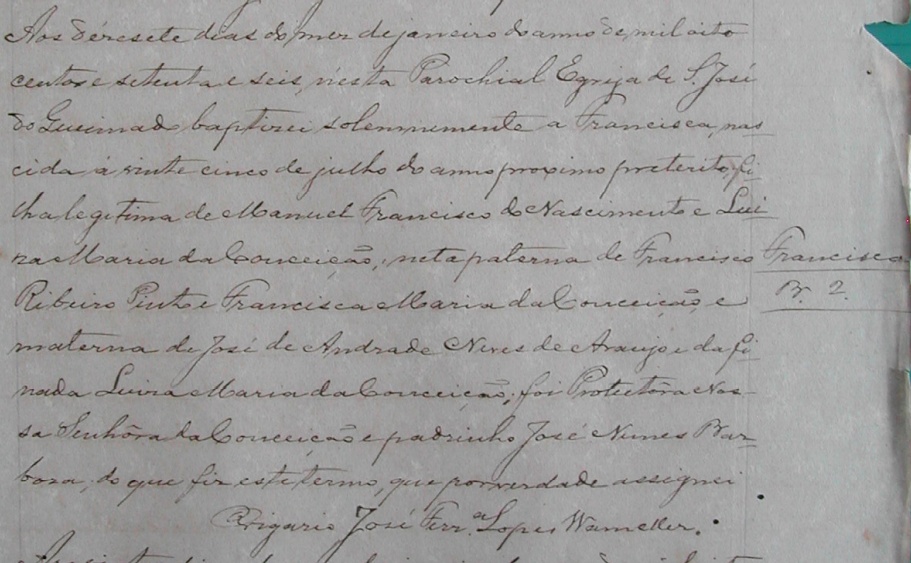 Aos déresete dias do mez de janeiro do anno de mil oito
centos e setenta e seis, n'esta Parochial Egreja de S. José
do Queimado baptizei solemnimente a Francisca, nas
cida á vinte cinco de julho do anno proximo preterito, fi
lha legitima de Manuel Francisco do Nascimento e Lui
za Maria da Conceição; neta paterna de Francisco
Ribeiro Pinto e Francisca Maria da Conceição, e
materna de José de Andrade Neves de Araujo e da fi
nada Luiza Maria da Conceição; foi Protectôra Nos
sa Senhôra da Conceição e padrinho José Nunes Bar
boza, do que fiz este termo, que por verdade assignei
O Vigario José Ferr.ª Lopes Wameller.
Francisca
B. 2.